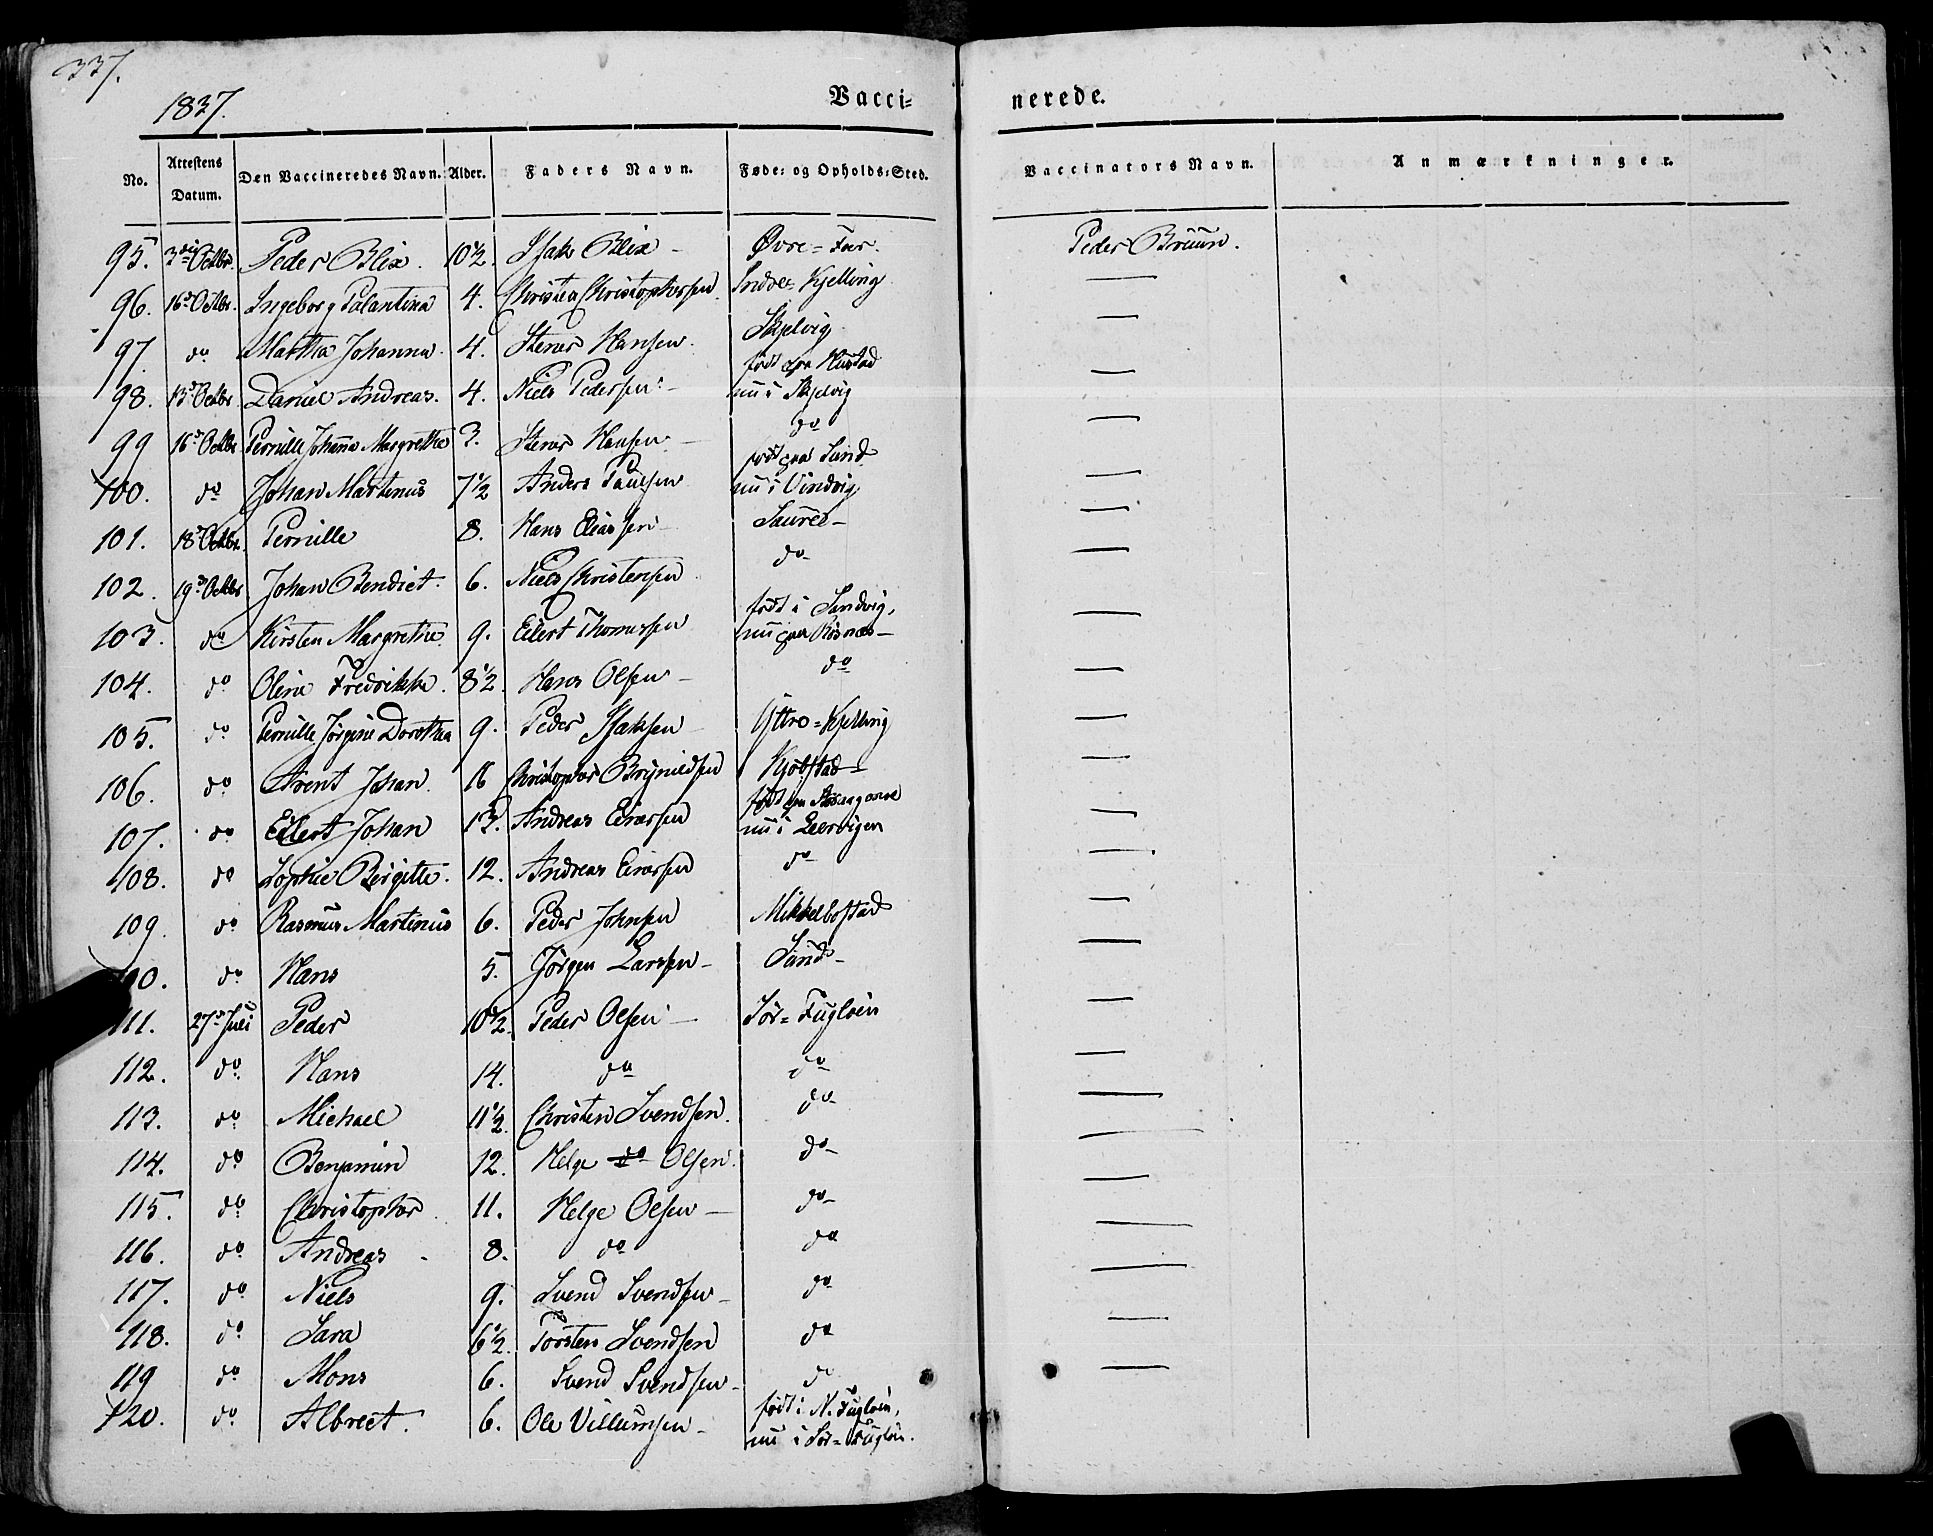 337.
1837.
Vacci= nerede.
No. Attestens Datum. Den Vaccineredes Navn. Alder. Faders Navn. Føde= og Opholds=Sted. Vaccinators Navn. Anmærkninger.
95. 3die Octbr. Peder Blix. 10½. Isak Blix — Øvre=Fær. Peder Bruun.
96. 16d Octbr. Ingeborg Palantina 4. Christen Christophersen. Indre= Kjelling —
97. do Martha Johanna. 4. Stener Hansen. Skjelvig —
98. 13d Octbr Daniel Andreas. 4. Niels Pedersen. — født paa Hustad —
nu i Skjelvig
99 16d Octbr Pernille Johanna Margrethe 3. Stener Hansen. — do —
100. do Johan Martinus 7½ Anders Paulsen født paa Sund —
nu i Vindvig
101. 18d Octbr. Pernille 8. Hans Eliassen — Saurea — —
102. 19d Octbr Johan Bendict. 6. Niels Christensen do —
103. do Kirsten Margrethe. 9. Eilert Thomessen født i Sandvig, —
nu paa Røsnæs —
104. do Olina Fredrikke. 8½. Hans Olsen — do
105. do Pernille Jørgine Dorothea 9. Peder Isaksen — Yttre=Kjelling —
106. do Arent Johan. 16 Christopher Brynildsen Kjøbstad — —
107. do Eilert Johan 13. Andreas Einersen født paa —
nu i Leervigen
108. do Sophie Birgitte. 12. Andreas Einersen do —
109. do Rasmus Martinus 6. Peder Johnsen Mikkelbostad —
110. do Hans 5. Jørgen Larssen — Sund — —
111. 27d Juli Peder 10½. Peder Olsen — Sør=Fugløen —
112. do Hans 14. do do —
113. do Michael 11½. Christen Svendsen. do —
114. do Benjamin 12. Helge do Olsen. do —
115. do Christopher 11. Helge Olsen — do —
116. do Andreas 8. do do —
117. do Niels 9. Svend Svendsen — do —
118. do Sara 6½. Torsten Svendsen do —
119 do Mons 6. Svend Svendsen — do —
120. do Albrect. 6. Ole Villumsen — født i N. Fugløen,
nu i Sør=Fugløen.